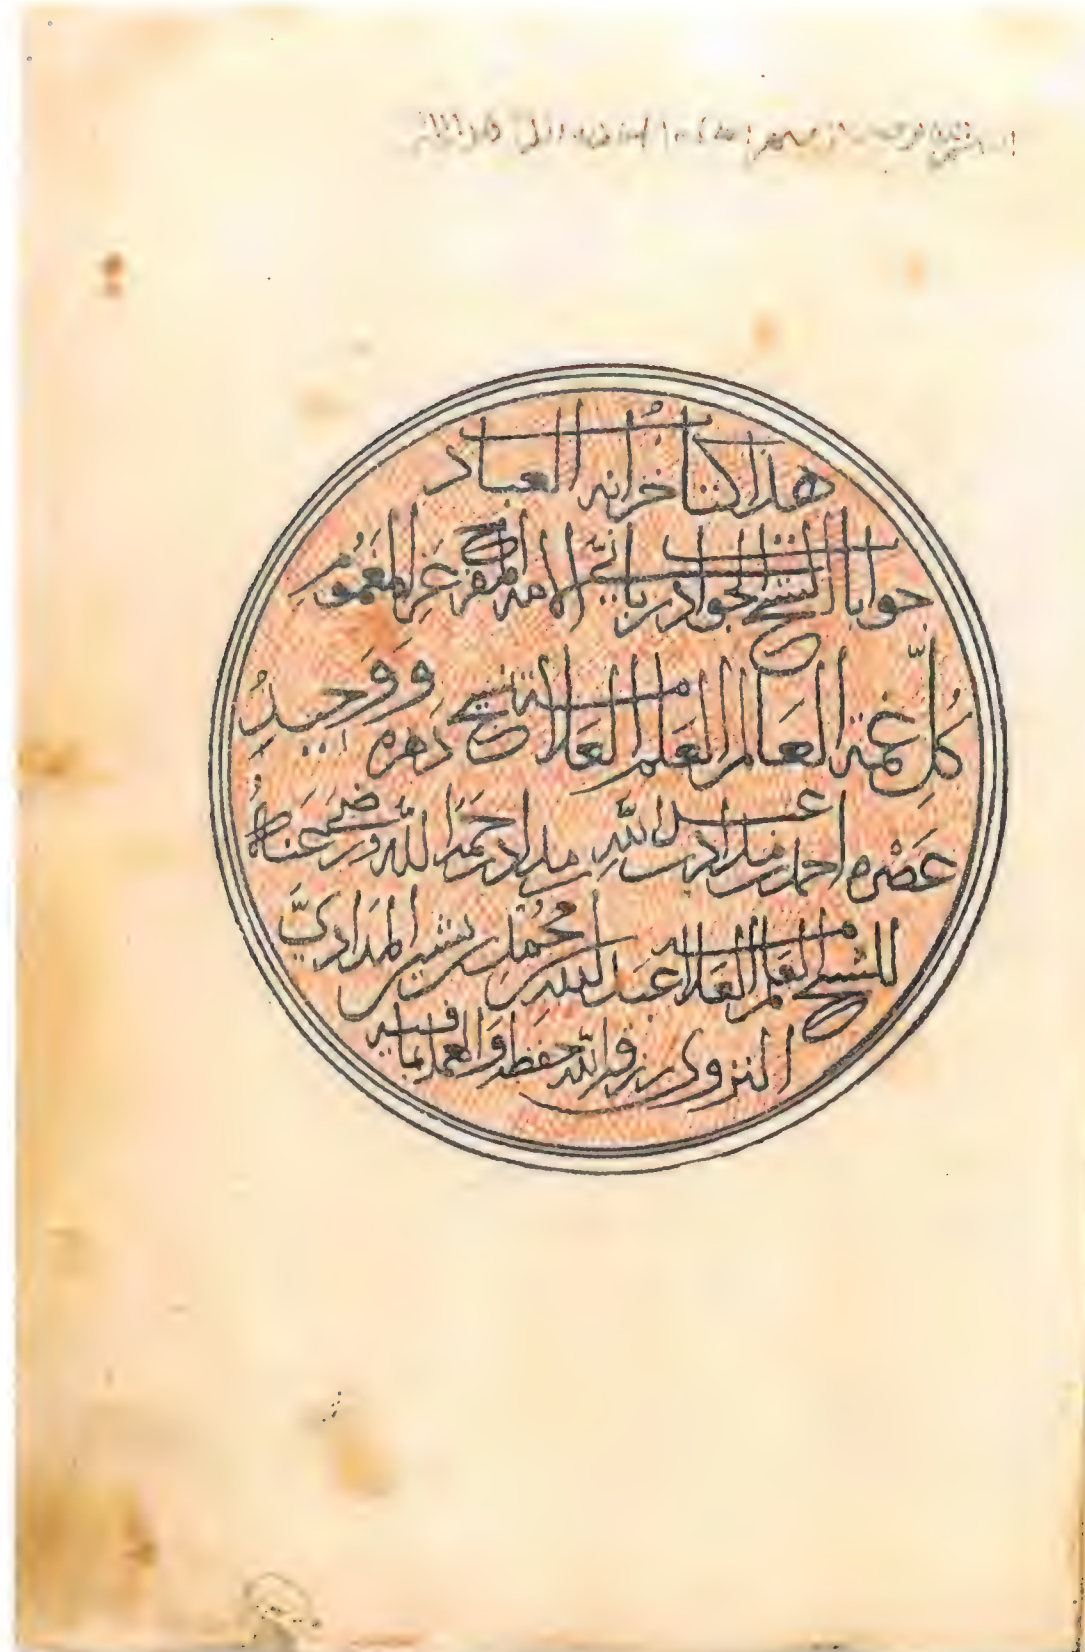 هذا كتاب خزانة العباد
جوابات الشيخ الجواد رباني الامة المفرج عن المغموم
كُلّ غمّة العالم العلم العلامة شيخ دهره وَوَحِيدُ
عَصْره احمد بن مداد بن عبد الله بن مداد رحمَهُ الله وَرضيَ عَنهُ
للشيخ العَلم العلامة عبد الله بن محمد بن بشير المدادي
النزوي رزقه الله حفظه والعمل بما فيه